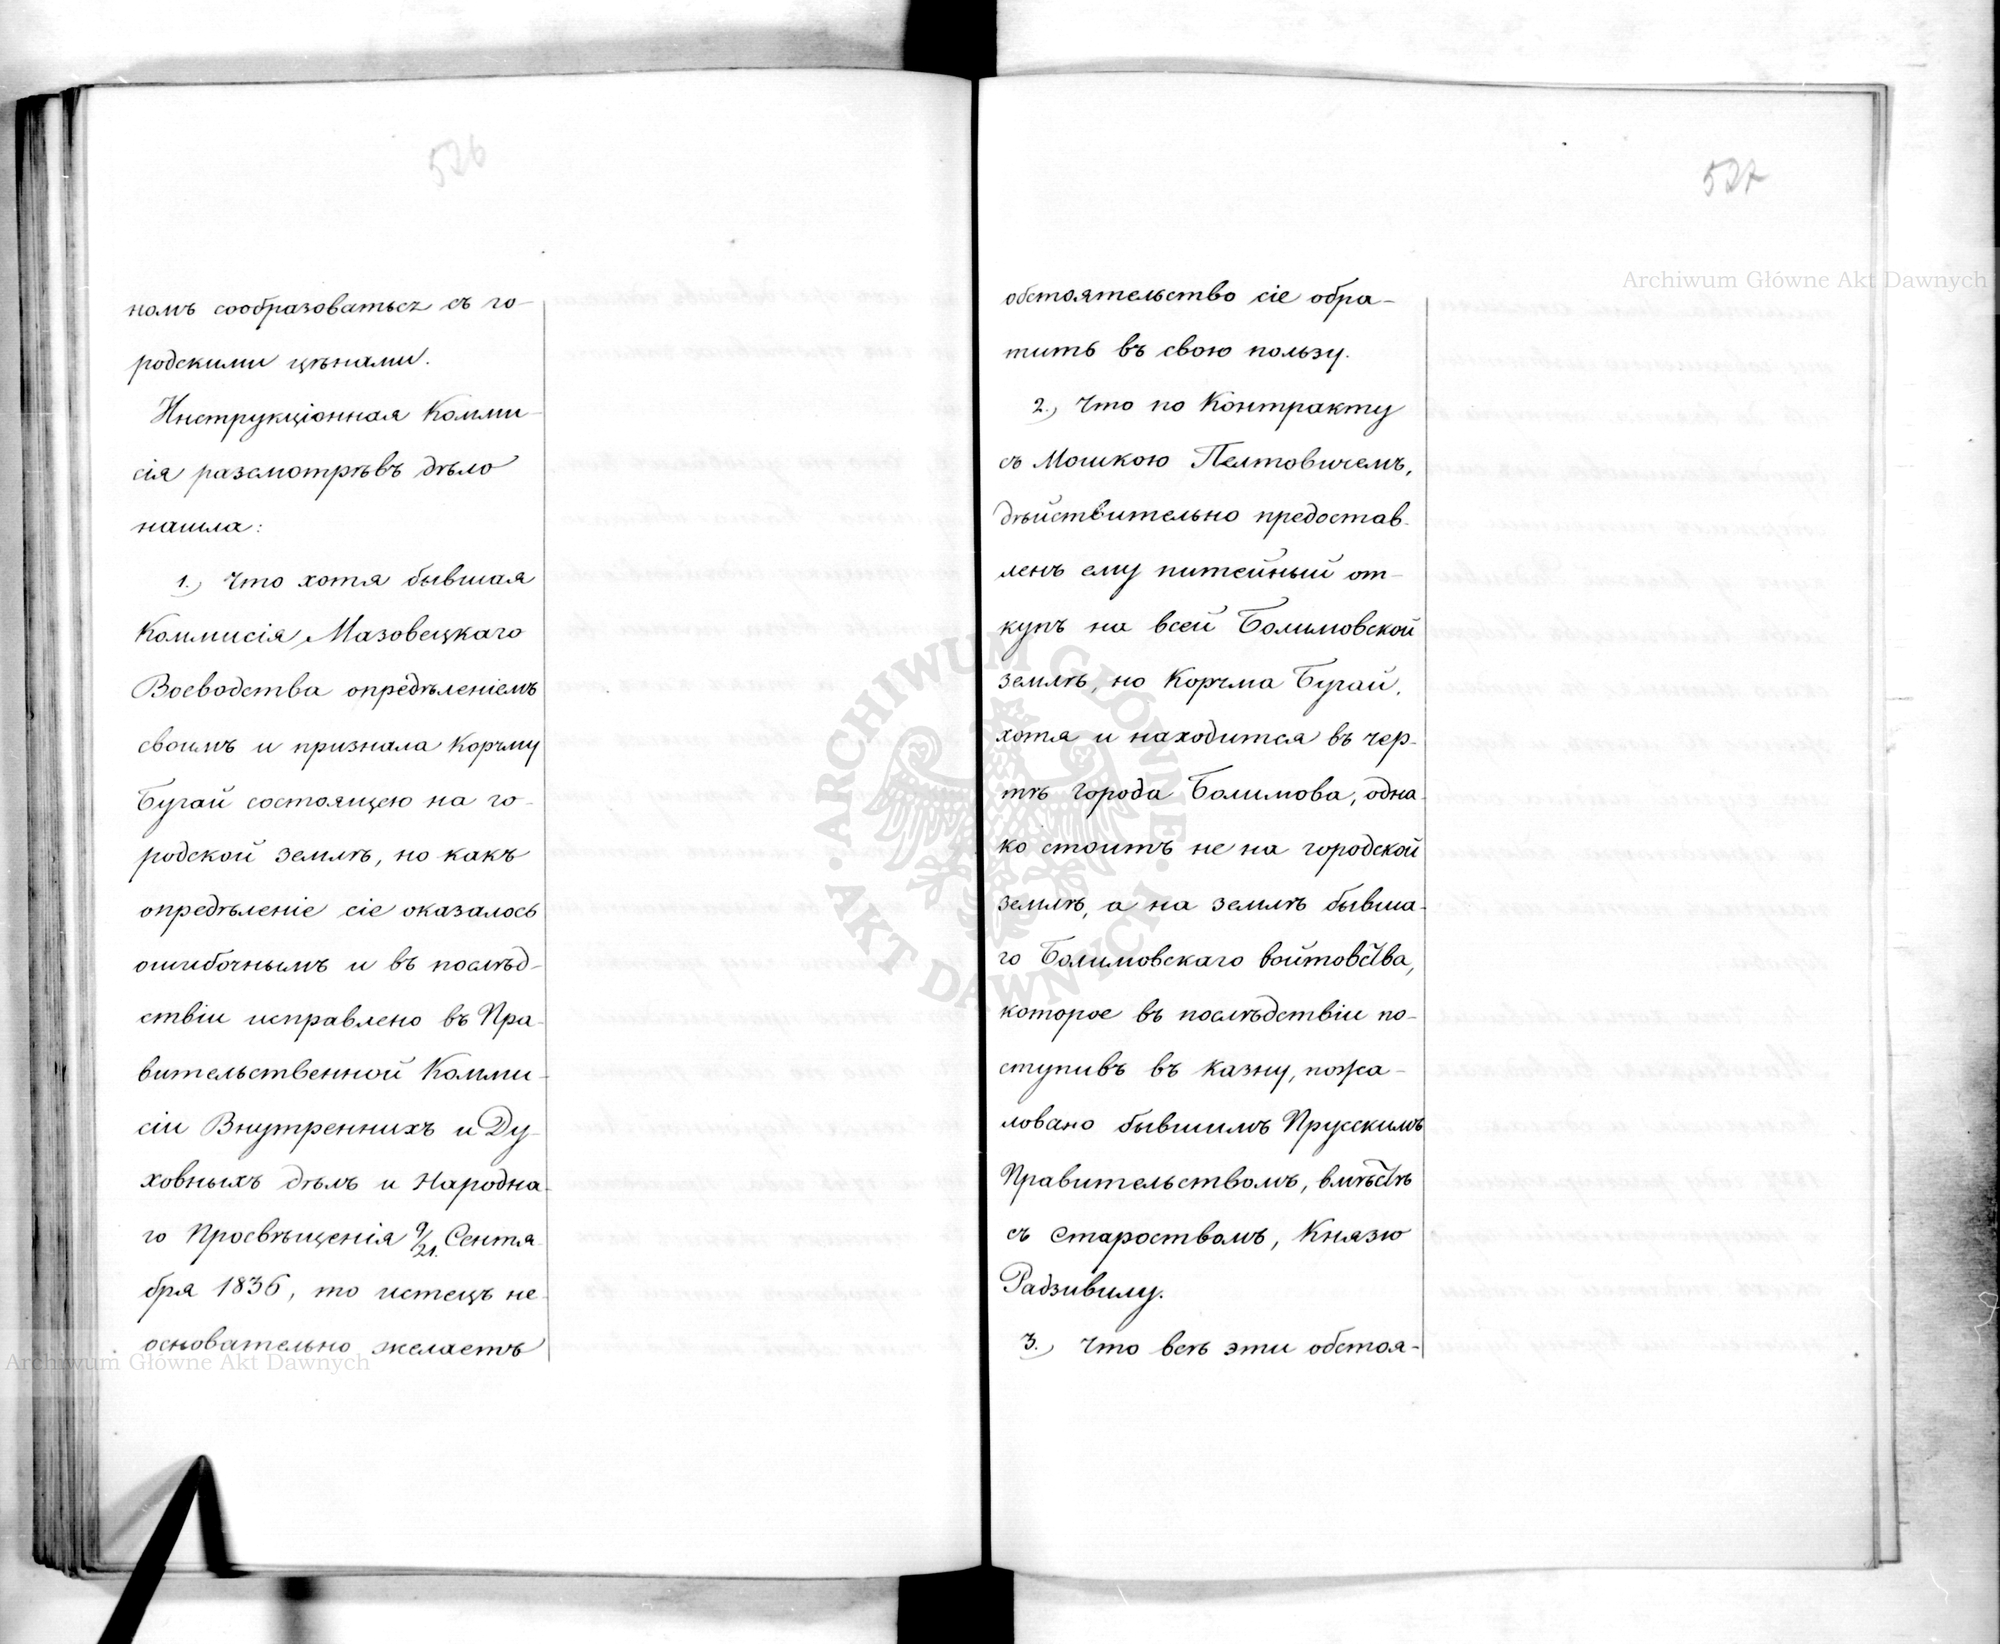 526
номъ сообразоваться съ го-
родскими цѣнами.
Инструкціонная Комми-
сія разсмотрѣвъ дѣло
нашла:
1., Что хотя бывшая
Коммисія Мазовецкаго
Воеводства опредѣленіемъ
своимъ и признала Корчму
Бугай состоящею на го-
родской землѣ, но какъ
опредѣленіе сіе оказалось
ошибочнымъ и въ послѣд-
ствіи исправлено въ Пра-
вительственной Комми-
сіи Внутреннихъ и Ду-
ховныхъ дѣлъ и Народна-
го Просвѣщенія 9/21. Сентя-
бря 1836, то истецъ не-
основательно желаетъ
527
обстоятельство сіе обра-
тить въ свою пользу.
2., Что по Контракту
съ Мошкою Пелтовичемъ,
дѣйствительно предостав-
ленъ ему питейный от-
купъ на всей Болимовской
землѣ, но Корчма Бугай,
хотя и находится въ чер-
тѣ города Болимова, одна-
ко стоитъ не на городской
землѣ, а на землѣ бывша-
го Болимовскаго войтовства,
которое въ послѣдствіи по-
ступивъ въ казну, пожа-
ловано бывшимъ Прусскимъ
Правительствомъ, вмѣстѣ
съ Староствомъ, Князю
Радзивилу.
3., Что всѣ эти обстоя-
Archiwum Główne Akt Dawnych
Archiwum Główne Akt Dawnych
ARCHIWUM GŁÓWNE · AKT DAWNYCH ·